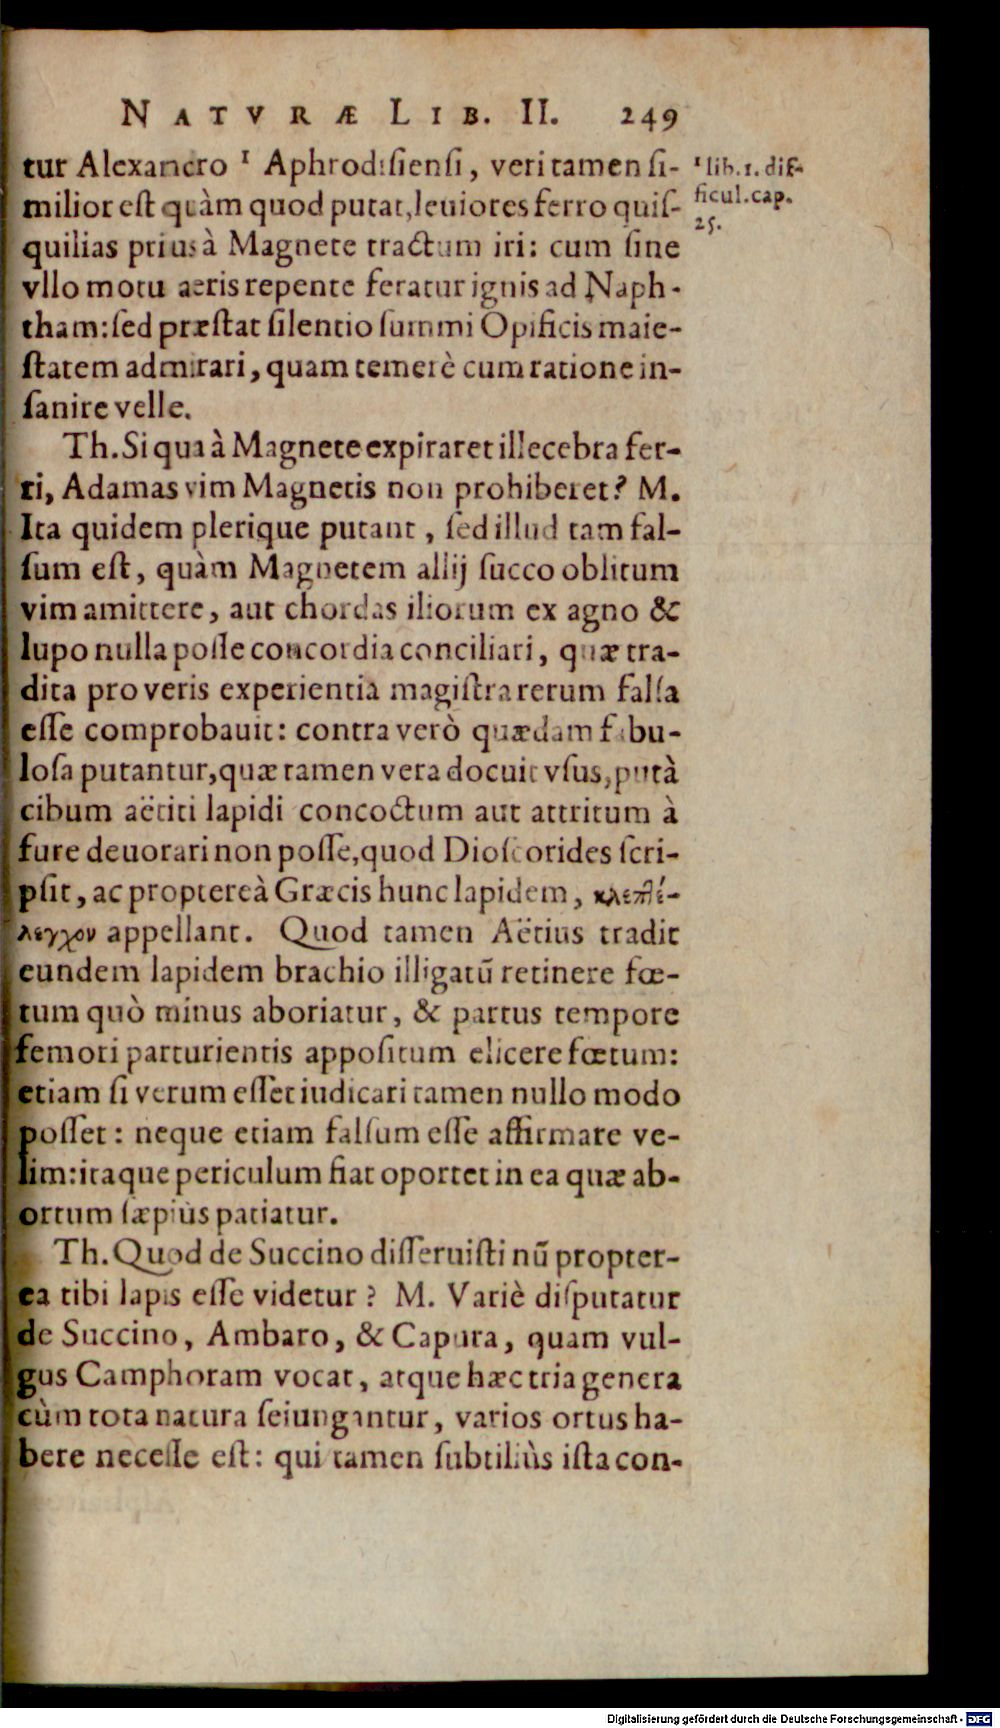 NATVRÆ LIB. II. 249
tur Alexandro ¹ Aphrodisiensi, veri tamen si-
milior est quàm quod putat, leuiores ferro quis-
quilias prius à Magnete tractum iri: cum sine
vllo motu aeris repente feratur ignis ad Naph-
tham: sed præstat silentio summi Opificis maie-
statem admirari, quam temerè cum ratione in-
sanire velle.
Th. Si qua à Magnete expiraret illecebra fer-
ri, Adamas vim Magnetis non prohiberet? M.
Ita quidem plerique putant, sed illud tam fal-
sum est, quàm Magnetem allij succo oblitum
vim amittere, aut chordas iliorum ex agno &
lupo nulla posse concordia conciliari, quæ tra-
dita pro veris experientia magistra rerum falsa
esse comprobauit: contra verò quædam fabu-
losa putantur, quæ tamen vera docuit vsus, putà
cibum aëtiti lapidi concoctum aut attritum à
fure deuorari non posse, quod Dioscorides scri-
psit, ac proptereà Græcis hunc lapidem, κλεπτέ-
λεγχον appellant. Quod tamen Aëtius tradit
eundem lapidem brachio illigatũ retinere fœ-
tum quò minus aboriatur, & partus tempore
femori parturientis appositum elicere fœtum:
etiam si verum esset iudicari tamen nullo modo
posset: neque etiam falsum esse affirmare ve-
lim: itaque periculum fiat oportet in ea quæ ab-
ortum sæpiùs patiatur.
Th. Quod de Succino disseruisti nũ propter-
ea tibi lapis esse videtur? M. Variè disputatur
de Succino, Ambaro, & Capura, quam vul-
gus Camphoram vocat, atque hæc tria genera
cùm tota natura seiungantur, varios ortus ha-
bere necesse est: qui tamen subtiliùs ista con-
¹ lib. 1. dif-
ficul. cap.
25.
Digitalisierung gefördert durch die Deutsche Forschungsgemeinschaft - DFG